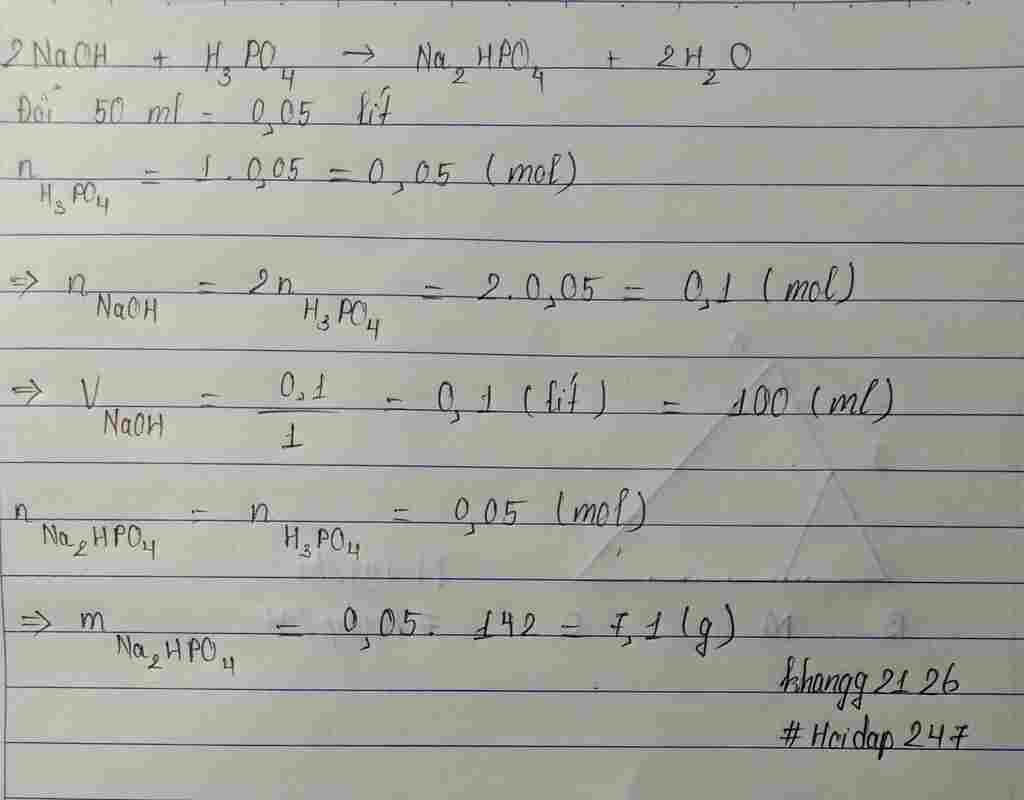 2NaOH + H₃PO₄ → Na₂HPO₄ + 2H₂O
Đổi 50 ml = 0,05 lít
n H₃PO₄ = 1.0,05 = 0,05 (mol)
⇒ n NaOH = 2n H₃PO₄ = 2.0,05 = 0,1 (mol)
⇒ V NaOH = 0,1/1 = 0,1 (lít) = 100 (ml)
n Na₂HPO₄ = n H₃PO₄ = 0,05 (mol)
⇒ m Na₂HPO₄ = 0,05. 142 = 7,1 (g)
khangg 21 26
# Hoidap 247